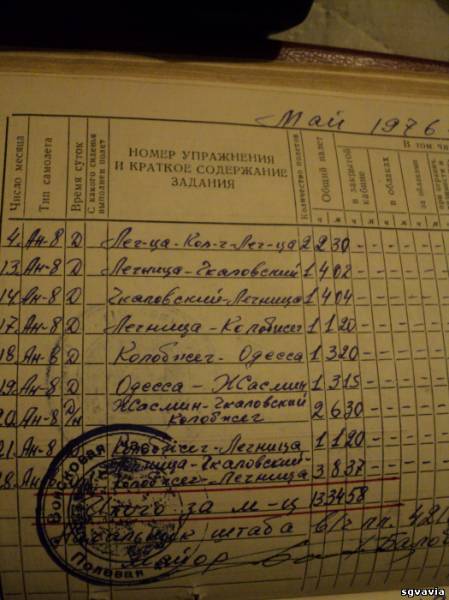 Май 1976
Число месяца
Тип самолета
Время суток
С какого сиденья выполнен полет
НОМЕР УПРАЖНЕНИЯ
И КРАТКОЕ СОДЕРЖАНИЕ
ЗАДАНИЯ
Количество полетов
Общий налет
в закрытой кабине
в облаках
за облаками
В том чи
4. Ан-8 Д Лег-ца-Кол-г-Лег-ца 2 2 30 – –
13. Ан-8 Д Легница-Чкаловский 1 4 02 – –
14. Ан-8 Д Чкаловский-Легница 1 4 04 – –
17. Ан-8 Д Легница-Колобжег 1 1 20 – –
18. Ан-8 Д Колобжег-Одесса 1 3 20 – –
19. Ан-8 Д Одесса-Жасмин 1 3 15 – –
20. Ан-8 Д/н Жасмин-Чкаловский
Колобжег 2 6 30 – –
21. Ан-8 Колобжег-Легница 1 1 20 – –
28. Ан Легница-Чкаловский-
Колобжег-Легница 3 8 37 – –
Итого за м-ц 13 34 58
Начальник штаба в/ч пп. 421
Майор
Войсковая Час
Полевая
sgvavia